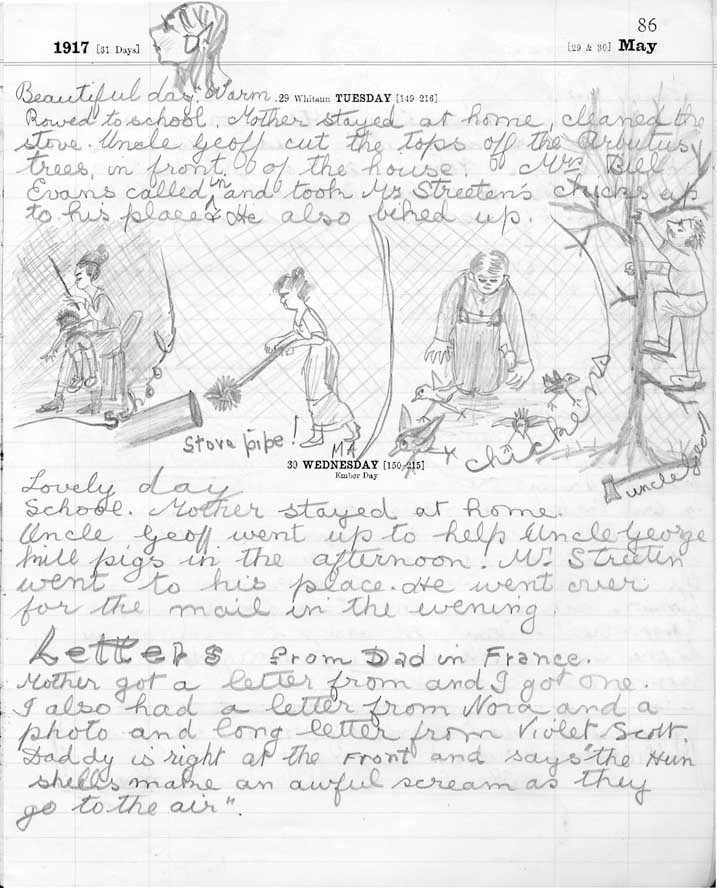 86
1917 [31 Days]
[29 & 30] May
Beautiful day. Warm.
29 Whitsun TUESDAY [149-216]
Rowed to school. Mother stayed at home, cleaned the
stove. Uncle Geoff cut the tops off the Arbutus
trees, in front of the house. Mrs Bill
Evans called in and took Mr Streeten's chicks up
to his place. He also biked up.
stove pipe!
MA
chickens
uncle Geoff
30 WEDNESDAY [150-215]
Ember Day
Lovely day
School. Mother stayed at home.
Uncle Geoff went up to help Uncle George
kill pigs in the afternoon. Mr Streeten
went to his place. He went over
for the mail in the evening.
Letters from Dad in France.
Mother got a letter from and I got one.
I also had a letter from Nora and a
photo and long letter from Violet Scott.
Daddy is right at the Front and says "the Hun
shells make an awful scream as they
go to the air".